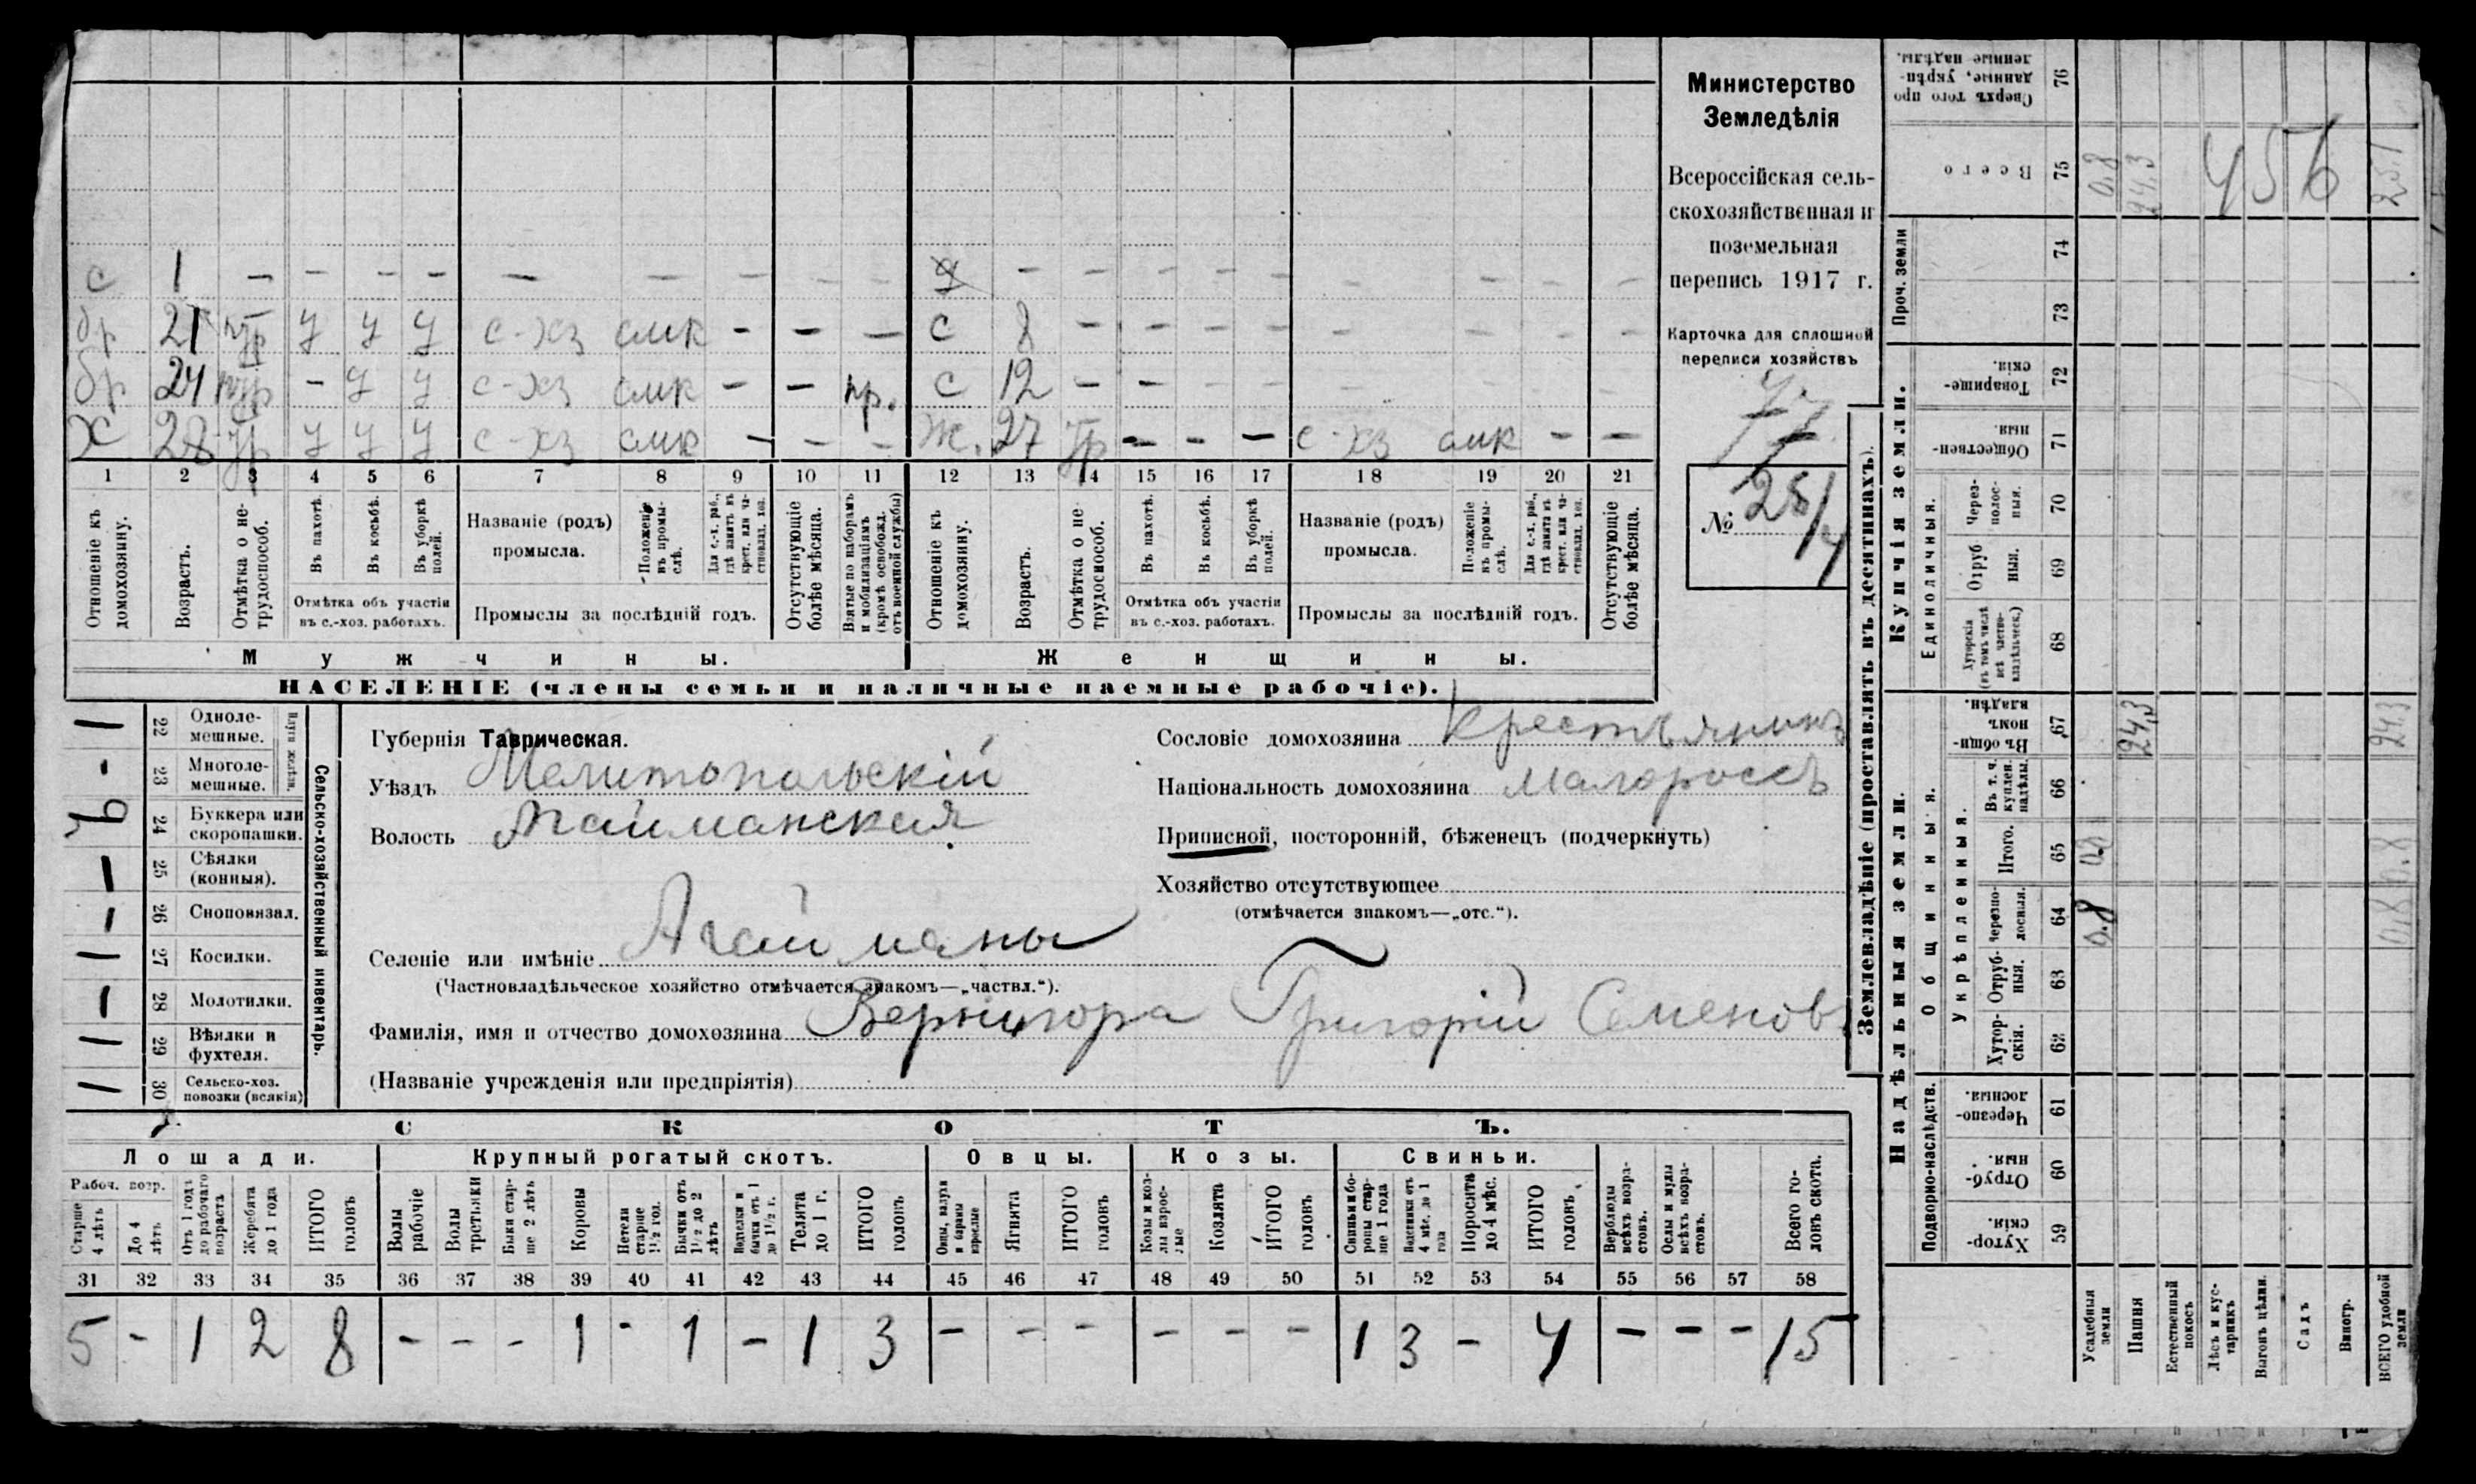 с 1 — — — — — — — — — д — — — — — — — — —
бр 21 у у у с-хз смк — — — с 8 — — — — — — — —
бр 24 — у у с-хз смк — — пр. с 12 — — — — — —
Х 28 тр у у у с-хз смк — — — ж. 27 тр — — — с-хз смк — —
1 2 3 4 5 6 7 8 9 10 11 12 13 14 15 16 17 18 19 20 21
Отношеніе къ домохозяину.
Возрастъ.
Отмѣтка о нетрудоспособ.
Въ пахотѣ.
Въ косьбѣ.
Въ уборкѣ полей.
Отмѣтка объ участіи
въ с.-хоз. работахъ.
Названіе (родъ)
промысла.
Положеніе въ промыслѣ.
Для с.-х. раб., гдѣ занятъ въ крест. или частновлад. хоз.
Промыслы за послѣдній годъ.
Отсутствующіе болѣе мѣсяца.
Взятые по наборамъ и мобилизаціямъ (кромѣ освобожд. отъ военной службы)
Отношеніе къ домохозяину.
Возрастъ.
Отмѣтка о нетрудоспособ.
Въ пахотѣ.
Въ косьбѣ.
Въ уборкѣ полей.
Отмѣтка объ участіи
въ с.-хоз. работахъ.
Названіе (родъ)
промысла.
Положеніе въ промыслѣ.
Для с.-х. раб., гдѣ занята въ крест. или частновлад. хоз.
Промыслы за послѣдній годъ.
Отсутствующіе болѣе мѣсяца.
Мужчины. Женщины.
НАСЕЛЕНІЕ (члены семьи и наличные наемные рабочіе).
Министерство
Земледѣлія
Всероссійская сель-
скохозяйственная и
поземельная
перепись 1917 г.
Карточка для сплошной
переписи хозяйствъ
77
№ 25/4
Сельско-хозяйственный инвентарь.
Плуги желѣзн.
1 22 Одноле-
мешные.
- 23 Многоле-
мешные.
24 Буккера или
скоропашки.
— 25 Сѣялки
(конныя).
- 26 Сноповязал.
1 27 Косилки.
- 28 Молотилки.
1 29 Вѣялки и
фухтеля.
1 30 Сельско-хоз.
повозки (всякія)
Губернія Таврическая.
Уѣздъ Мелитопольскій
Волость Агайманская
Селеніе или имѣніе Агайманы
(Частновладѣльческое хозяйство отмѣчается знакомъ—„частвл.“).
Фамилія, имя и отчество домохозяина Вернигора Григорій Семенов
(Названіе учрежденія или предпріятія)
Сословіе домохозяина Крестьянинъ
Національность домохозяина малороссъ
Приписной, посторонній, бѣженецъ (подчеркнуть)
Хозяйство отсутствующее
(отмѣчается знакомъ—„отс.“).
СКОТЪ.
Лошади. Крупный рогатый скотъ. Овцы. Козы. Свиньи.
Рабоч. возр.
Старше 4 лѣтъ
До 4 лѣтъ
Отъ 1 года до рабочаго возраста
Жеребята до 1 года
ИТОГО головъ
Волы рабочіе
Волы третьяки
Быки старше 2 лѣтъ
Коровы
Нетели старше 1½ год.
Бычки отъ 1½ до 2 лѣтъ
Телки и бычки отъ 1 до 1½ г.
Телята до 1 г.
ИТОГО головъ
Овцы, валухи и бараны взрослые
Ягнята
ИТОГО головъ
Козы и козлы взрослые
Козлята
ИТОГО головъ
Свиньи и боровы старше 1 года
Подсвинки отъ 4 мѣс. до 1 года
Поросята до 4 мѣс.
ИТОГО головъ
Верблюды всѣхъ возрастовъ.
Ослы и мулы всѣхъ возрастовъ.
Всего головъ скота.
31 32 33 34 35 36 37 38 39 40 41 42 43 44 45 46 47 48 49 50 51 52 53 54 55 56 57 58
5 - 1 2 8 - - - 1 - 1 - 1 3 - - - - - - 1 3 - 4 - - - 15
Землевладѣніе (проставлять въ десятинахъ).
Надѣльныя земли. Купчія земли. Проч. земли
Подворно-наслѣдств.
Общинныя.
Укрѣпленныя.
Единоличныя.
Сверхъ того проданные, укрѣпленные надѣлы. 76
Всего 75 0.8 24,3 25.1
456
74
73
Товарищескія. 72
Общественныя. 71
Черезполосныя. 70
Отрубныя. 69
Хуторскія (въ томъ числѣ всѣ частновладѣльческ.) 68
Въ общинномъ владѣн. 67 24,3 24.3
Въ т. ч. куплен. надѣлы. 66
Итого. 65 0.8 0.8
Черезполосныя. 64 0.8 0.8
Отрубныя. 63
Хуторскія. 62
Черезполосныя. 61
Отрубныя. 60
Хуторскія. 59
Усадебныя земли
Пашня
Естественный покосъ
Лѣсъ и кустарникъ
Выгонъ цѣлин.
Садъ
Виногр.
ВСЕГО удобной земли